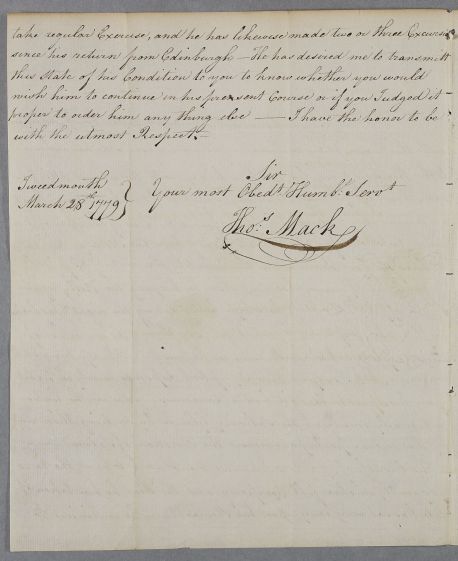 take regular Exercise, and he has likewise made two or three Excursions
since his return from Edinburgh — He has desired me to transmitt
this State of his Condition to you to know whether you would
wish him to continue in his present Course or if you Judged it
proper to order him any thing else — I have the honor to be
with the utmost Respect
Sir
Tweedmouth
March 28th 1779 } Your most Obedt Humble Servt
Thos Mack